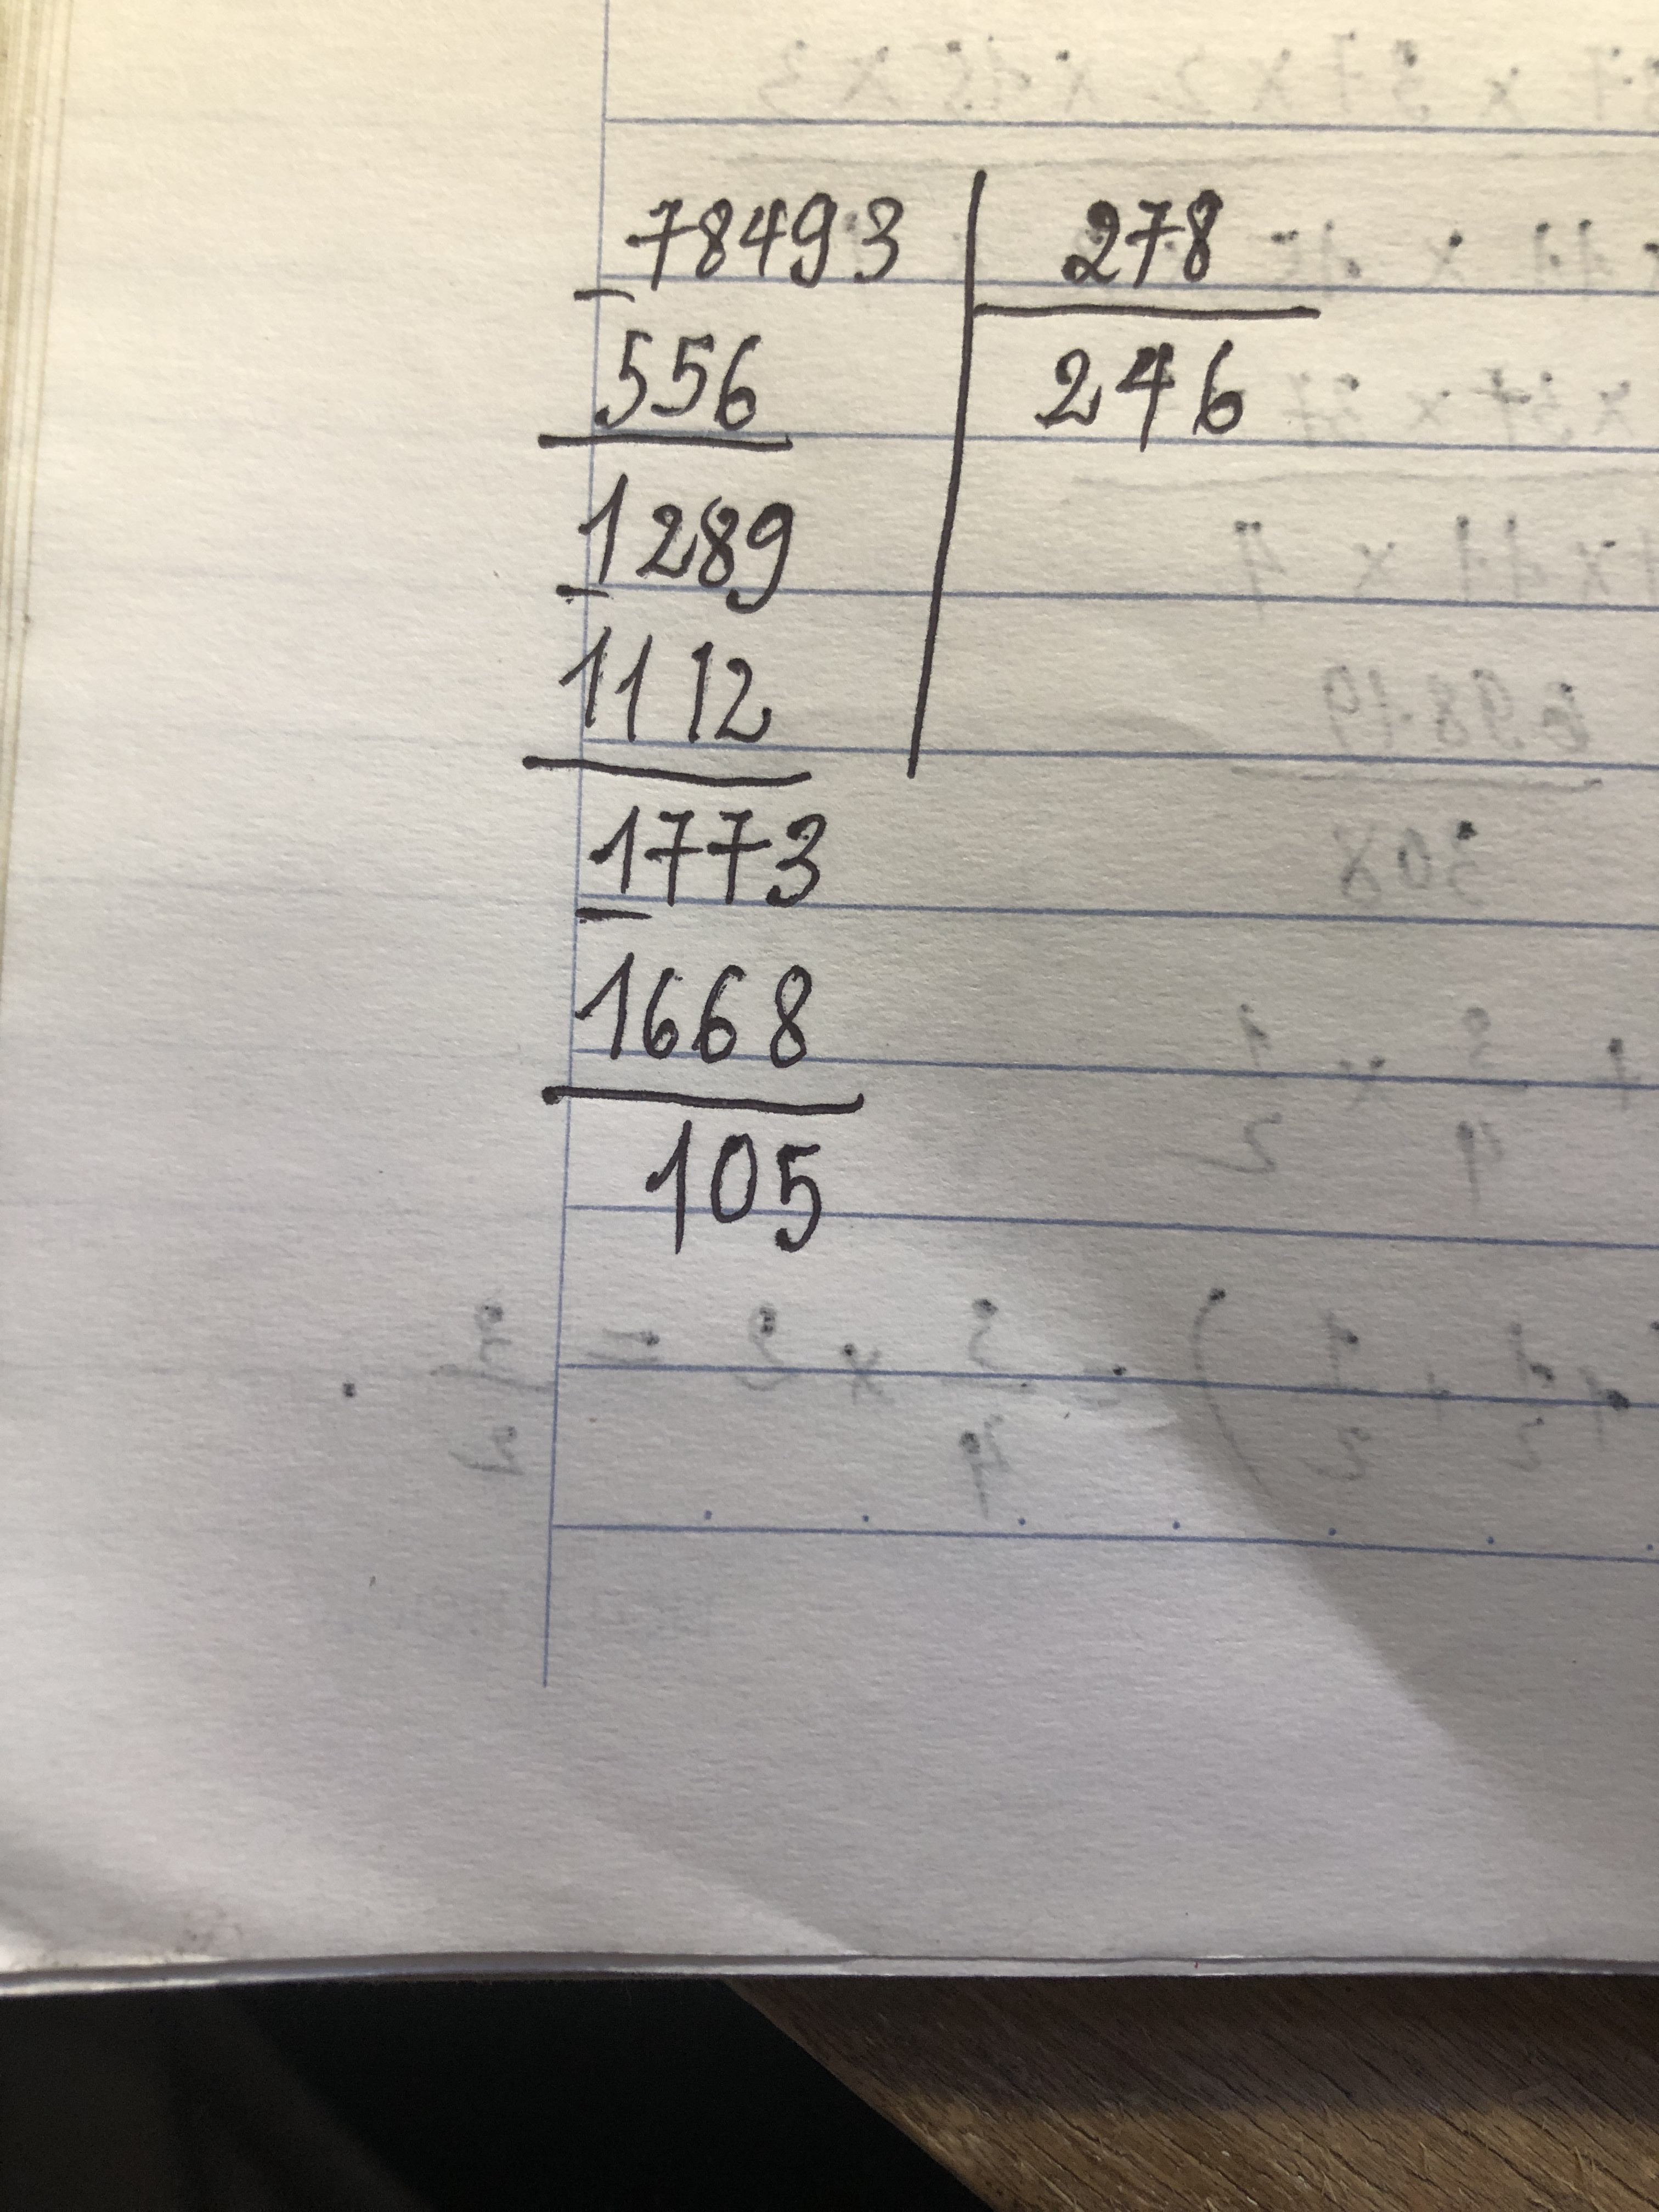 78493 278
556 246
1289
1112
1773
1668
105